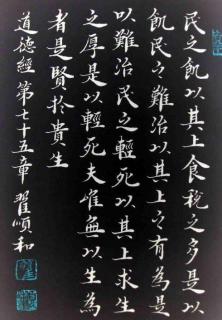 民之飢以其上食稅之多是以
飢民之難治以其上之有為是
以難治民之輕死以其上求生
之厚是以輕死夫唯無以生為
者是賢於貴生
道德經第七十五章 翟順和